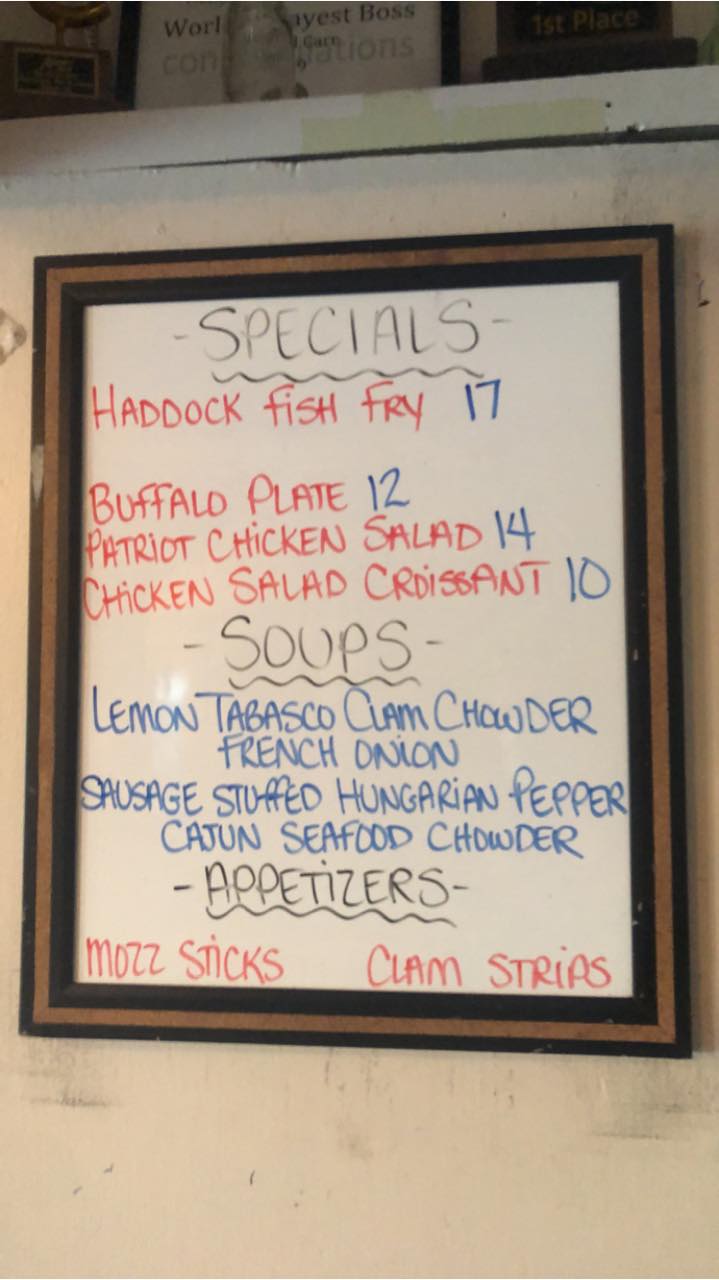 Worl ayest Boss
Care
con ations
1st Place
-SPECIALS-
HADDOCK FISH FRY 17
BUFFALO PLATE 12
PATRIOT CHICKEN SALAD 14
CHICKEN SALAD CROISSANT 10
-SOUPS-
LEMON TABASCO CLAM CHOWDER
FRENCH ONION
SAUSAGE STUFFED HUNGARIAN PEPPER
CAJUN SEAFOOD CHOWDER
-APPETIZERS-
MOZZ STICKS CLAM STRIPS